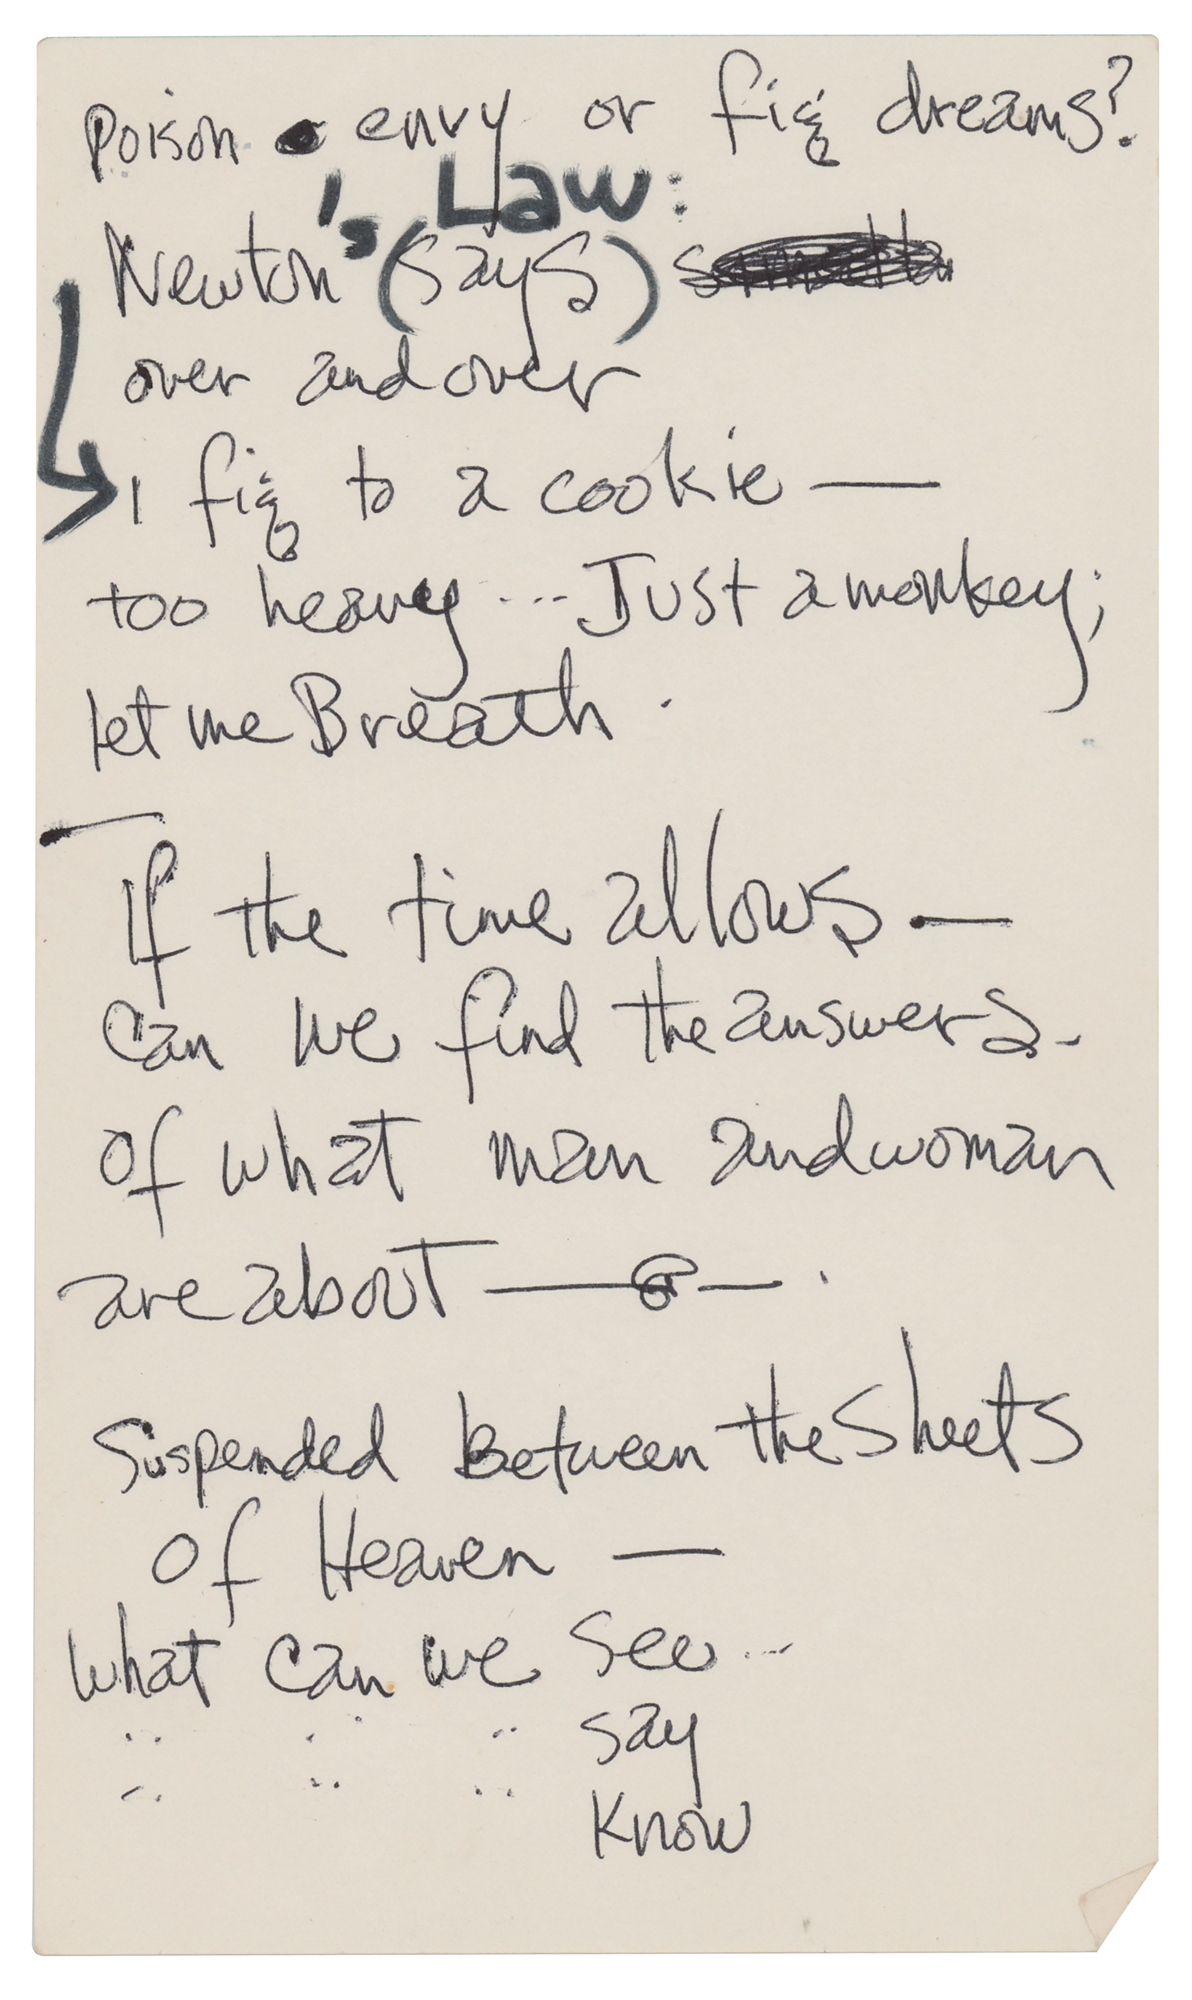 Poison envy or fig dreams?
's Law:
Newton (says)
over and over
1 fig to a cookie —
too heavy --- Just a monkey;
let me Breath.
If the time allows —
Can we find the answers -
of what man and woman
are about — — .
Suspended Between the Sheets
of Heaven —
What can we see ...
" " " say
" " " Know